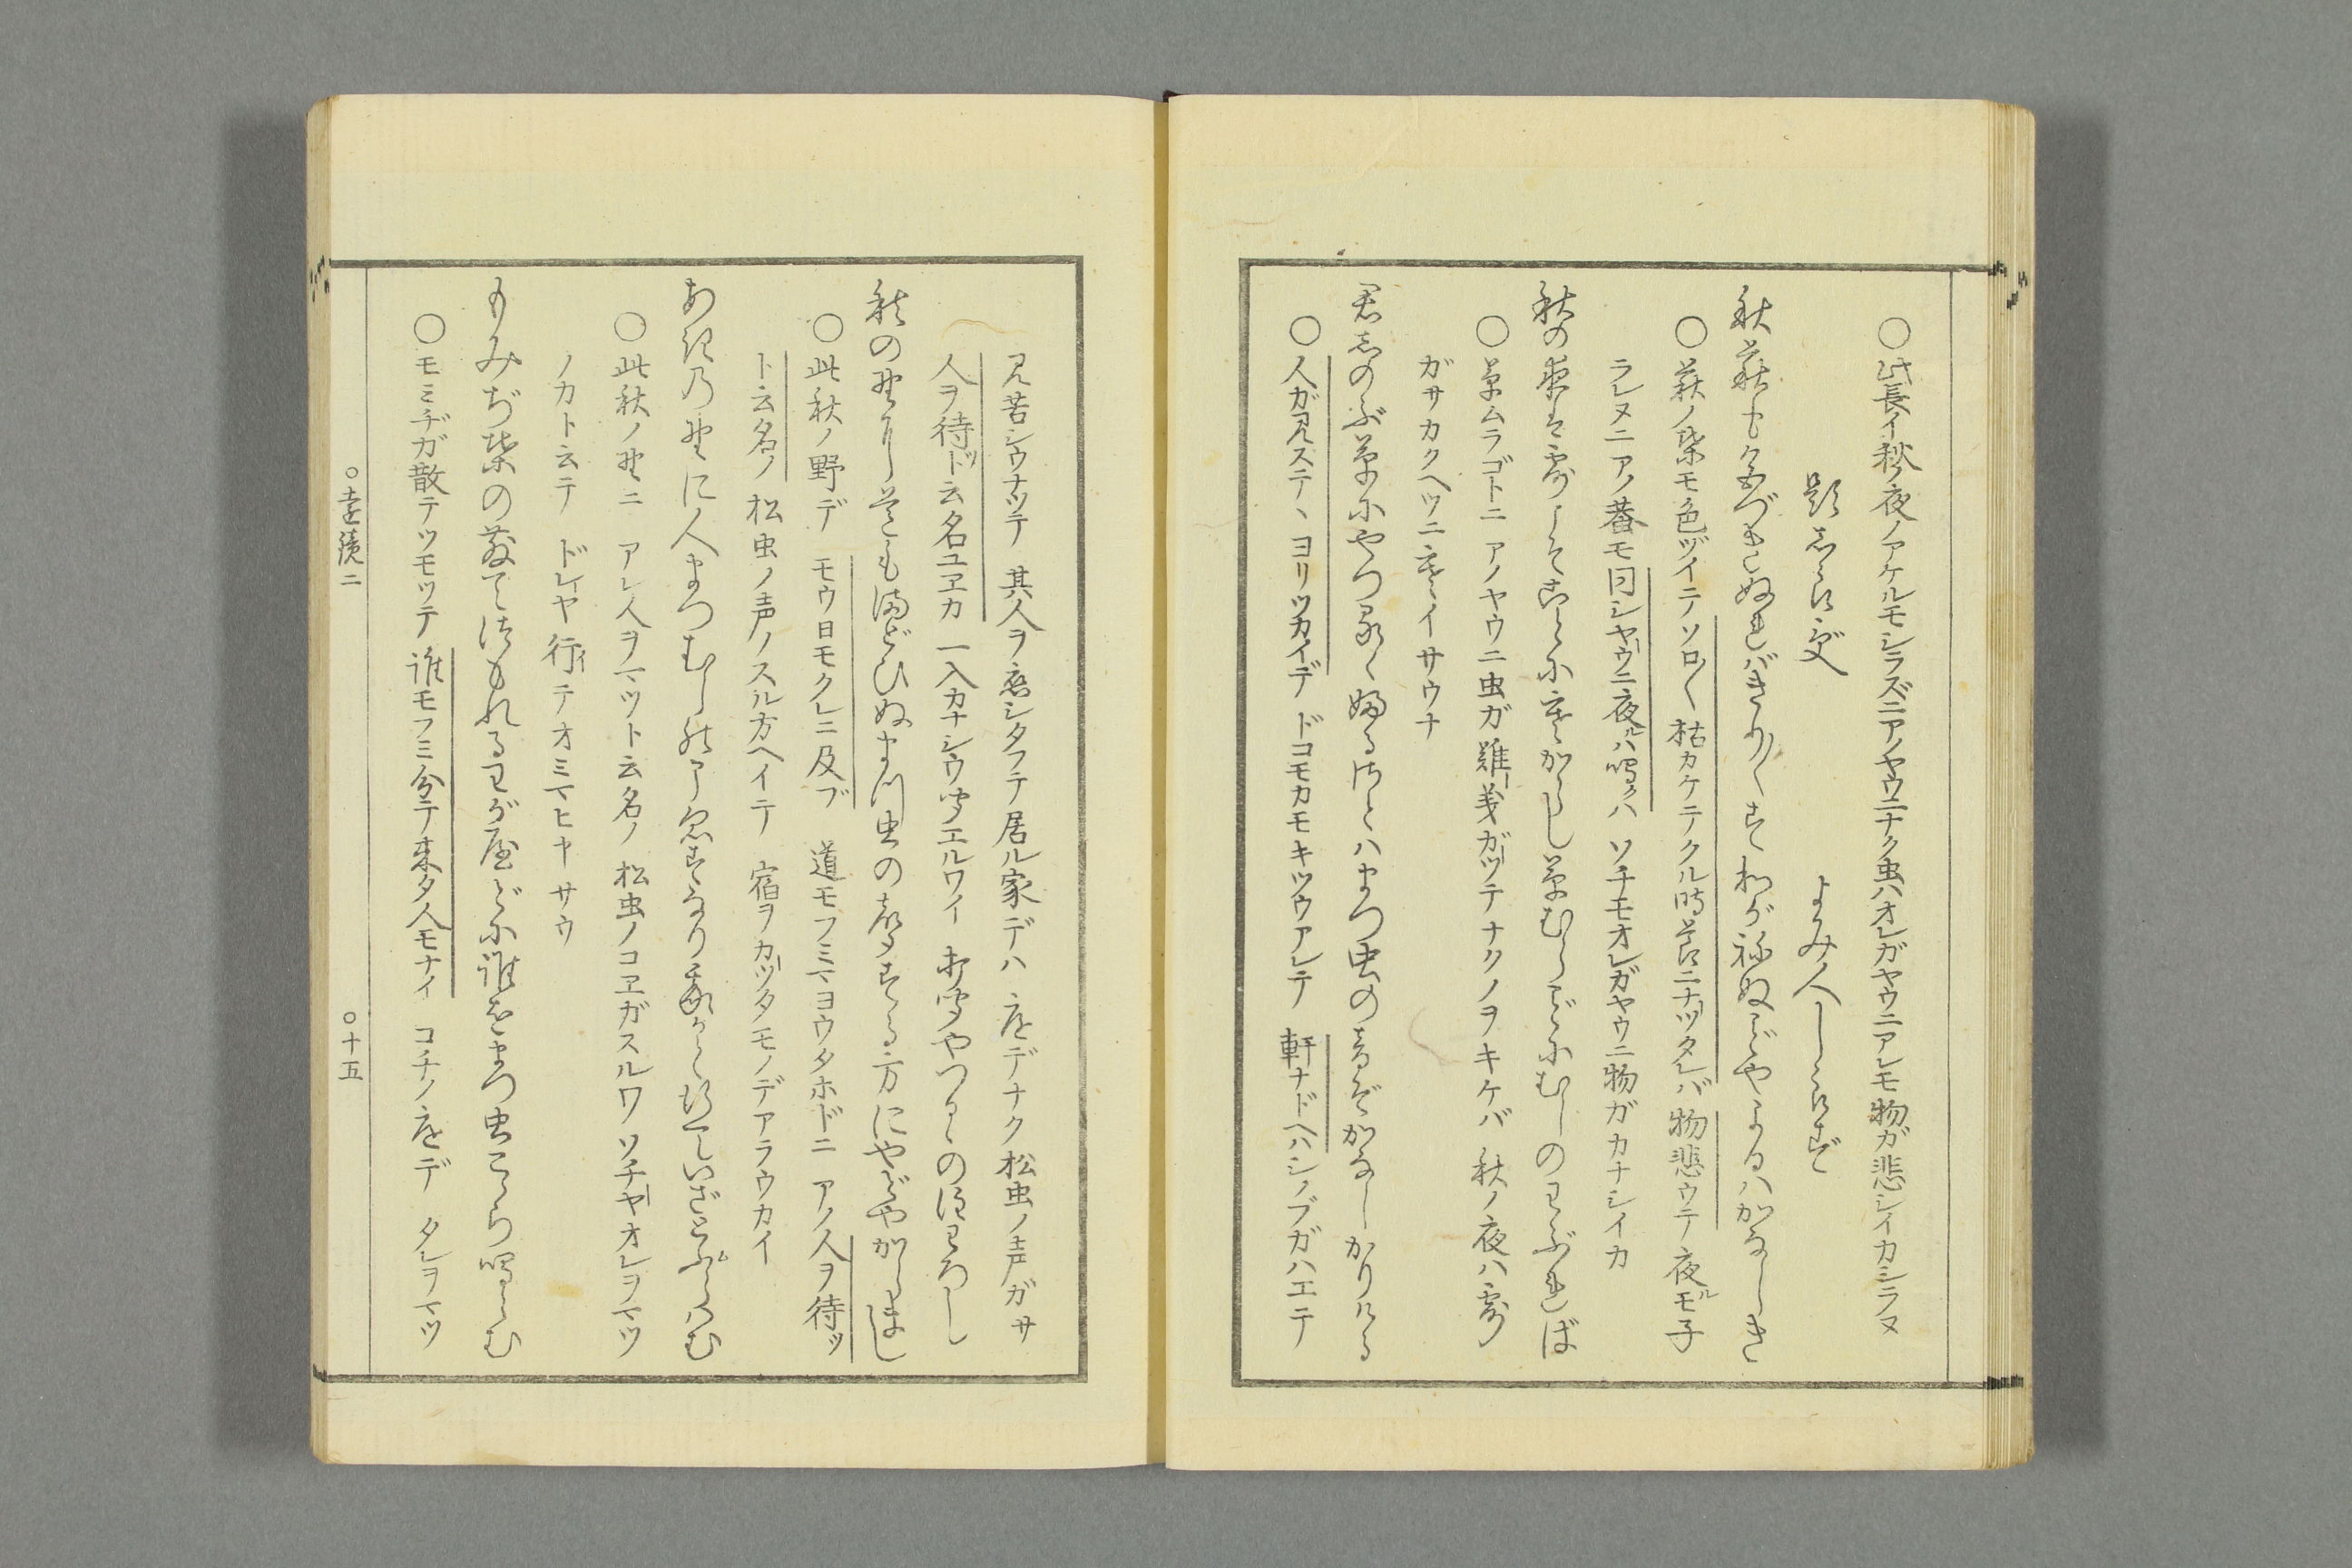 〇此長イ秋ノ夜ノアケルモシラズニアノヤウニナク虫ハオレガヤウニアレモ物ガ悲シイカシラヌ
題しらず　よみ人しらず
秋萩も色づきぬればきり〴〵すわがねぬごとやよるはかなしき
〇萩ノ葉モ色ヅイテソロ〳〵枯カケテクル時節ニナツタレバ物悲ウテ夜ルモ子
ラレヌニアノ蛬モ同シヤウニ夜ルハ鳴クハソチモオレガヤウニ物ガカナシイカ
秋の夜は露こそことにさむからし草むらごとにむしのわぶれば
〇草ムラゴトニアノヤウニ虫ガ難義ガツテナクノヲキケバ秋ノ夜ハ露
ガサカクベツニ寒イサウナ
君しのぶ草にやつるゝ故るさとはまつ虫の音ぞかなしかりける
〇人ガ見ステヽヨリツカイデドコモカモキツウアレテ軒ナドヘハシノブガハエテ
見苦シウナツテ其人ヲ恋シタフテ居ル家デハ庭デナク松虫ノ声ガサ
人ヲ待ツト云名ユヱカ一入カナシウ聞エルワイ
秋の野に道もまどひぬまつ虫の声する方にやどやからまし
〇此秋ノ野デモウ日モクレニ及ブ道モフミマヨウタホドニアノ人ヲ待ツ
ト云名ノ松虫ノ声ノスル方ヘイテ宿ヲカツタモノデアラウカイ
あきの野に人まつむしの声すなり我かと行ていざとぶらはむ
〇此秋ノ野ニアレ人ヲマツト云名ノ松虫ノコヱガスルワソチヤオレヲマツ
ノカト云テドレヤ行テオミマヒヤサウ
もみぢ葉の散てつもれるわが屋どに誰をまつ虫こゝら鳴らむ
〇モミヂガ散テツモツテ誰モフミ分テ来タ人モナイコチノ庭デタレヲマツ
〇遠鏡二　〇十五